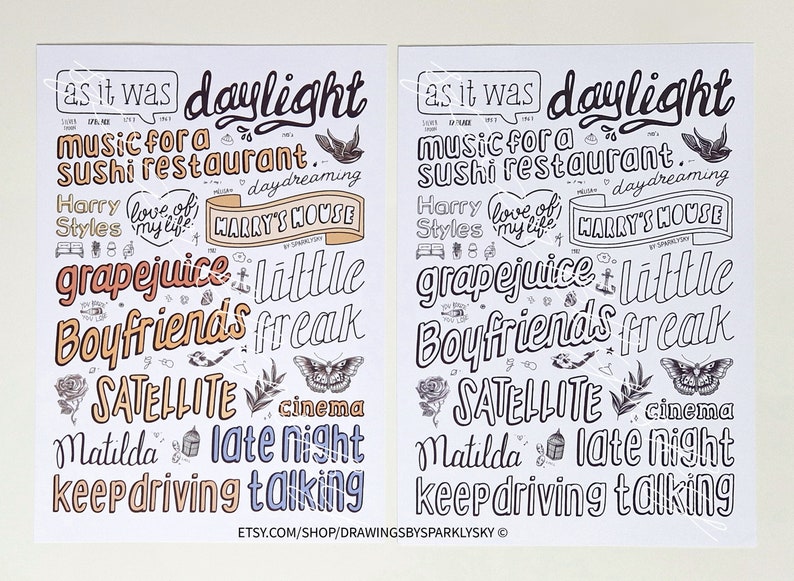 as it was
daylight
SILVER SPOON
17 BLACK
1957
1967
music for a
sushi restaurant.
daydreaming
Harry
Styles
love of
my life
HARRY'S HOUSE
BY SPARKLYSKY
1982
grapejuice
little
freak
YOU BOUGHT
YOU LOSE
Boyfriends
SATELLITE
cinema
Matilda
late night
talking
keep driving
as it was
daylight
SILVER SPOON
17 BLACK
1957
1967
music for a
sushi restaurant.
daydreaming
Harry
Styles
love of
my life
HARRY'S HOUSE
BY SPARKLYSKY
grapejuice
little
freak
Boyfriends
SATELLITE
cinema
Matilda
late night
talking
keep driving
ETSY.COM/SHOP/DRAWINGSBYSPARKLYSKY ©